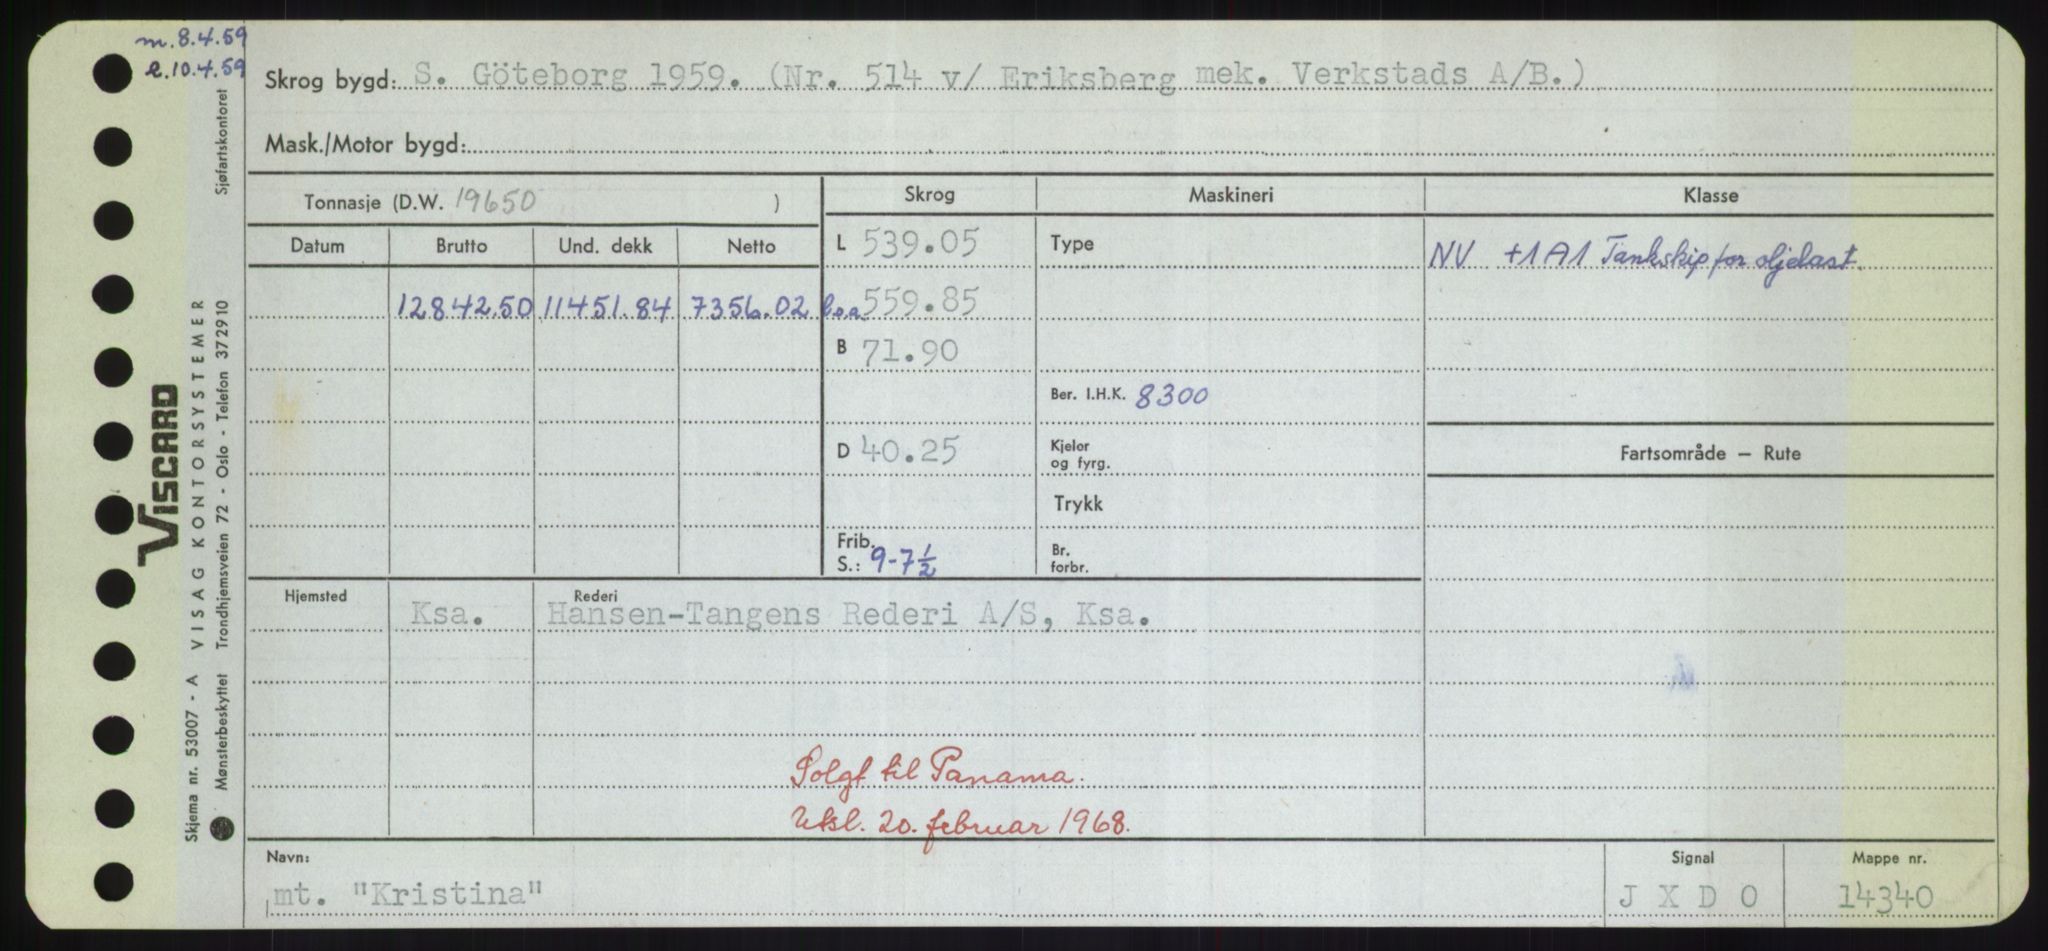 m.8.4.59
e.10.4.59
Skrog bygd: S. Göteborg 1959. (Nr. 514 v/ Eriksberg mek. Verkstads A/B.)
Mask./Motor bygd:
Tonnasje (D.W. 19650 )
Skrog
Maskineri
Klasse
Datum
Brutto
Und. dekk
Netto
L 539.05
Type
NV +1A1 Tankskip for oljelast.
12842.50 11451.84 7356.02
l.o.a. 559.85
B 71.90
Ber. I.H.K. 8300
D 40.25
Kjelor
og fyrg.
Fartsområde – Rute
Trykk
Frib.
S.: 9-7½
Br.
forbr.
Hjemsted
Rederi
Ksa. Hansen-Tangens Rederi A/S, Ksa.
Solgt til Panama.
Uksl. 20. februar 1968.
Navn:
mt. "Kristina"
Signal
J X D O
Mappe nr.
14340
VISCARD
Skjema nr. 53007 - A VISAG KONTORSYSTEMER
Mønsterbeskyttet Trondhjemsveien 72 - Oslo - Telefon 372910 Sjøfartskontoret